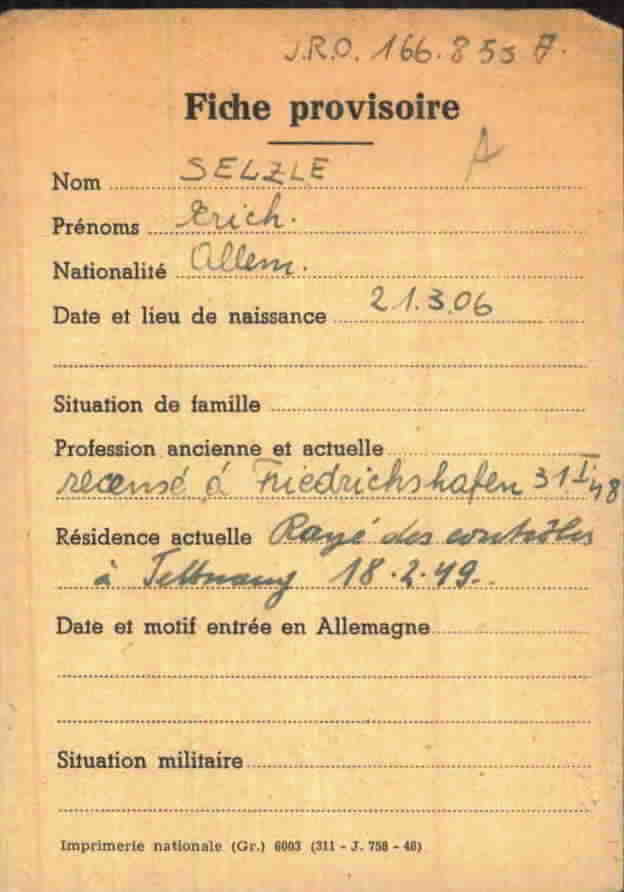 J.R.O. 166.853 A.
Fiche provisoire
A
Nom SELZLE
Prénoms Erich.
Nationalité Allem.
Date et lieu de naissance 21.3.06
Situation de famille
Profession ancienne et actuelle
recensé à Friedrichshafen 31 I 48
Résidence actuelle Rayé des contrôles
à Tettnang 18.2.49.
Date et motif entrée en Allemagne
Situation militaire
Imprimerie nationale (Gr.) 6003 (311 - J. 758 - 46)